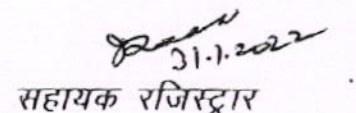 31.1.2022
सहायक रजिस्ट्रार